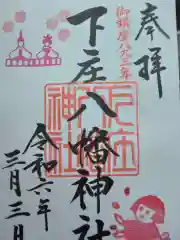 奉拝
御鎮座八六三年
下庄八幡神社
令和六年
三月三日